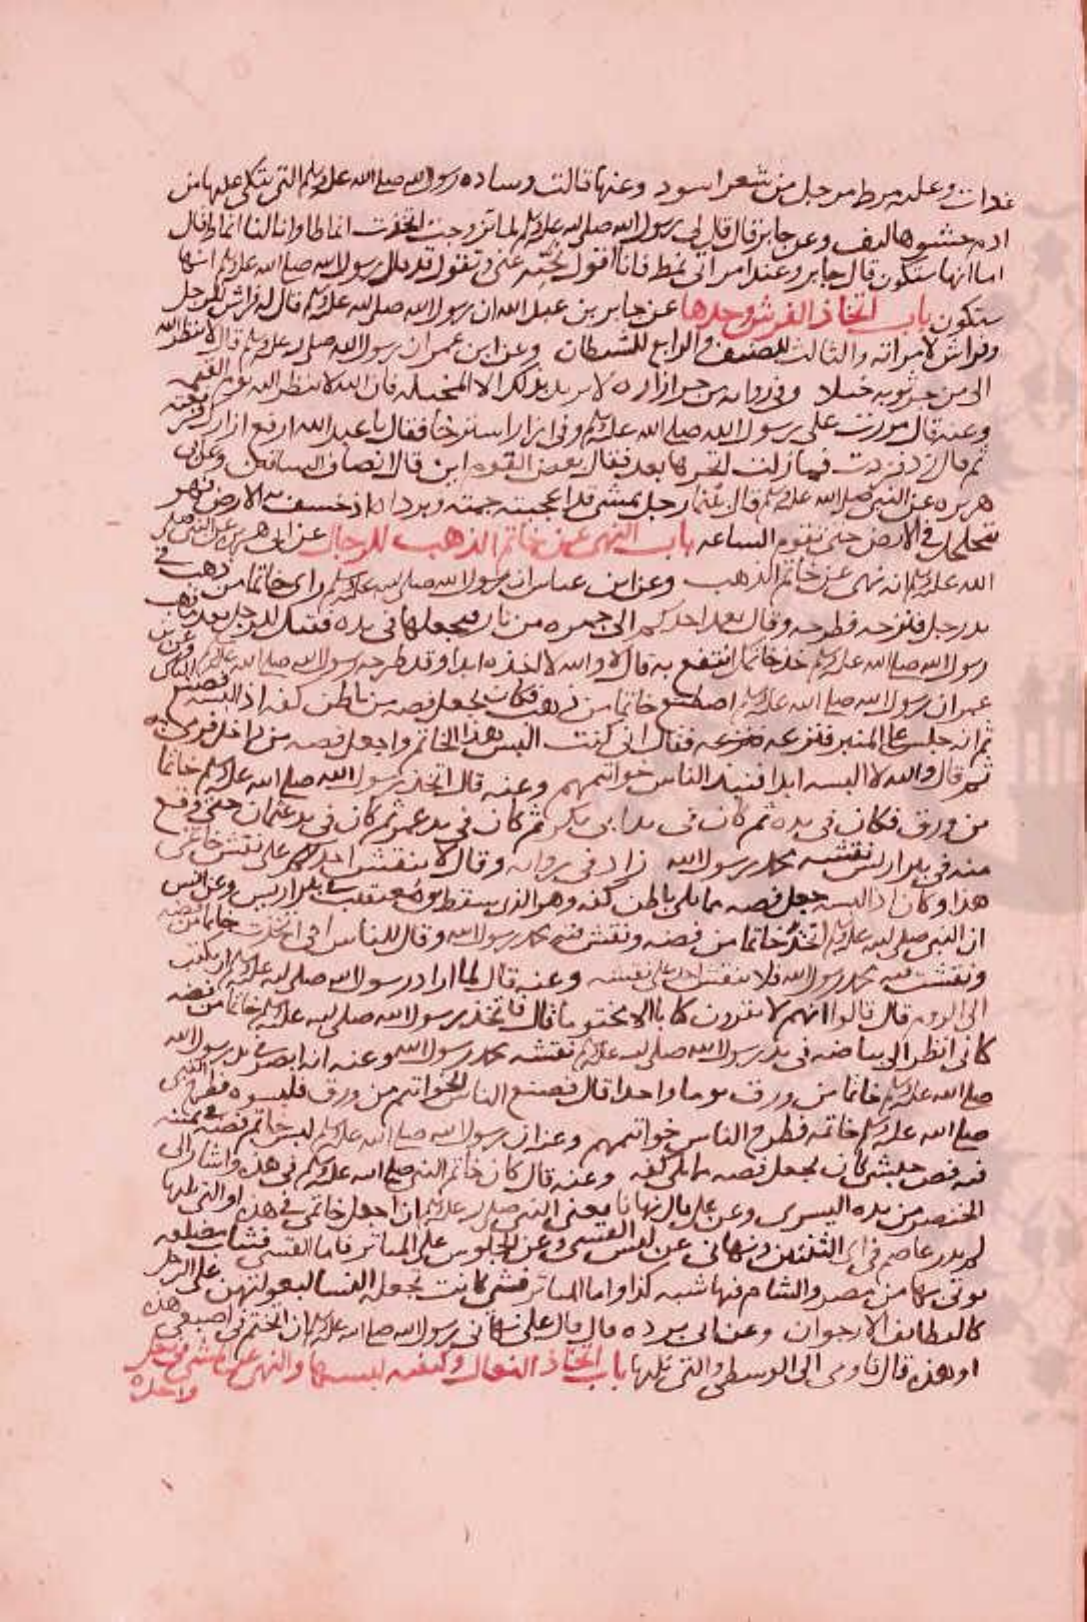 غداة وعليه مرط مرحل من شعر اسود وعنها قالت وساده رسول الله صلى الله عليه وسلم التي يتكي عليها من
ادم حشوها ليف وعن جابر قال قال لي رسول الله صلى الله عليه وسلم لما تزوجت اتخذت انماطا وانا لنا انماط قال
اما انها ستكون قال جابر وعند امراتي نمط فانا اقول نحيه عني وتقول قد قال رسول الله صلى الله عليه وسلم انها
ستكون باب اتخاذ الفرش وحدها عن جابر بن عبد الله ان رسول الله صلى الله عليه وسلم قال له فراش للرجل
وفراش لامراته والثالث للضيف والرابع للشيطان وعن ابن عمر ان رسول الله صلى الله عليه وسلم قال لا ينظر الله
الى من جر ثوبه خيلا وفي رواية من جر ازاره لا يريد بذلك الا المخيله فان الله لا ينظر اليه يوم القيمه
وعنه قال مررت على رسول الله صلى الله عليه وسلم وفي ازار استرخا فقال يا عبد الله ارفع ازارك فرفعته
ثم قال زد فزدت فما زلت اتحراها بعد فقال بعض القوم اين قال انصاف الساقين وعن ابي
هريره عن النبي صلى الله عليه وسلم قال بينما رجل يمشي قد اعجبته جمته وبرداه اذ خسف به الارض فهو
يتجلجل في الارض حتى تقوم الساعه باب النهي عن خاتم الذهب للرجال عن ابي هريره عن النبي صلى
الله عليه وسلم انه نهى عن خاتم الذهب وعن ابن عباس ان رسول الله صلى الله عليه وسلم راى خاتما من ذهب في
يد رجل فنزعه فطرحه وقال يعمد احدكم الى جمره من نار فيجعلها في يده فقيل للرجل بعد ما ذهب
رسول الله صلى الله عليه وسلم خذ خاتمك انتفع به قال لا والله لا اخذه ابدا وقد طرحه رسول الله صلى الله عليه وسلم وعن ابن
عمر ان رسول الله صلى الله عليه وسلم اصطنع خاتما من ذهب فكان يجعل فصه من باطن كفه اذا لبسه فصنع الناس
ثم انه جلس على المنبر فنزعه فقال اني كنت البس هذا الخاتم واجعل فصه من داخل فرمى به
ثم قال والله لا البسه ابدا فنبذ الناس خواتيمهم وعنه قال اتخذ رسول الله صلى الله عليه وسلم خاتما
من ورق فكان في يده ثم كان في يد ابي بكر ثم كان في يد عمر ثم كان في يد عثمان حتى وقع
منه في بير اريس نقشه محمد رسول الله زاد في رواية وقال لا ينقش احدكم على نقش خاتمي
هذا وكان اذا لبسه جعل فصه مما يلي باطن كفه وهو الذي سقط من معيقيب في بير اريس وعن انس
ان النبي صلى الله عليه وسلم اتخذ خاتما من فضه ونقش فيه محمد رسول الله وقال للناس اني اتخذت خاتما من فضه
ونقشت فيه محمد رسول الله فلا ينقش احد على نقشه وعنه قال لما اراد رسول الله صلى الله عليه وسلم ان يكتب
الى الروم قال قالوا انهم لا يقرون كتابا الا مختوما قال فاتخذ رسول الله صلى الله عليه وسلم خاتما من فضه
كاني انظر الى بياضه في يد رسول الله صلى الله عليه وسلم نقشه محمد رسول الله وعنه انه ابصر في يد رسول الله
صلى الله عليه وسلم خاتما من ورق يوما واحدا قال فصنع الناس الخواتم من ورق فلبسوه فطرح النبي
صلى الله عليه وسلم خاتمه فطرح الناس خواتيمهم وعنه ان رسول الله صلى الله عليه وسلم لبس خاتم فضه في يمينه
فيه فص حبشي كان يجعل فصه مما يلي كفه وعنه قال كان خاتم النبي صلى الله عليه وسلم في هذه واشار الى
الخنصر من يده اليسرى وعن علي قال نهانا يعني النبي صلى الله عليه وسلم ان اجعل خاتمي في هذه او التي تليها
لم يدر عاصم في اي الثنتين ونهاني عن لبس القسي وعن الجلوس على المياثر فاما القسي فثياب مضلعه
يوتى بها من مصر والشام فيها شبه كذا واما المياثر فشي كانت تجعله النسا لبعولتهن على الرحل
كالقطايف الارجوان وعن ابي برده قال قال علي نهاني رسول الله صلى الله عليه وسلم ان اتختم في اصبعي هذه
او هذه قال فاومى الى الوسطى والتي تليها باب اتخاذ النعال وكيفيه لبسها والنهي عن المشي في نعل
واحده